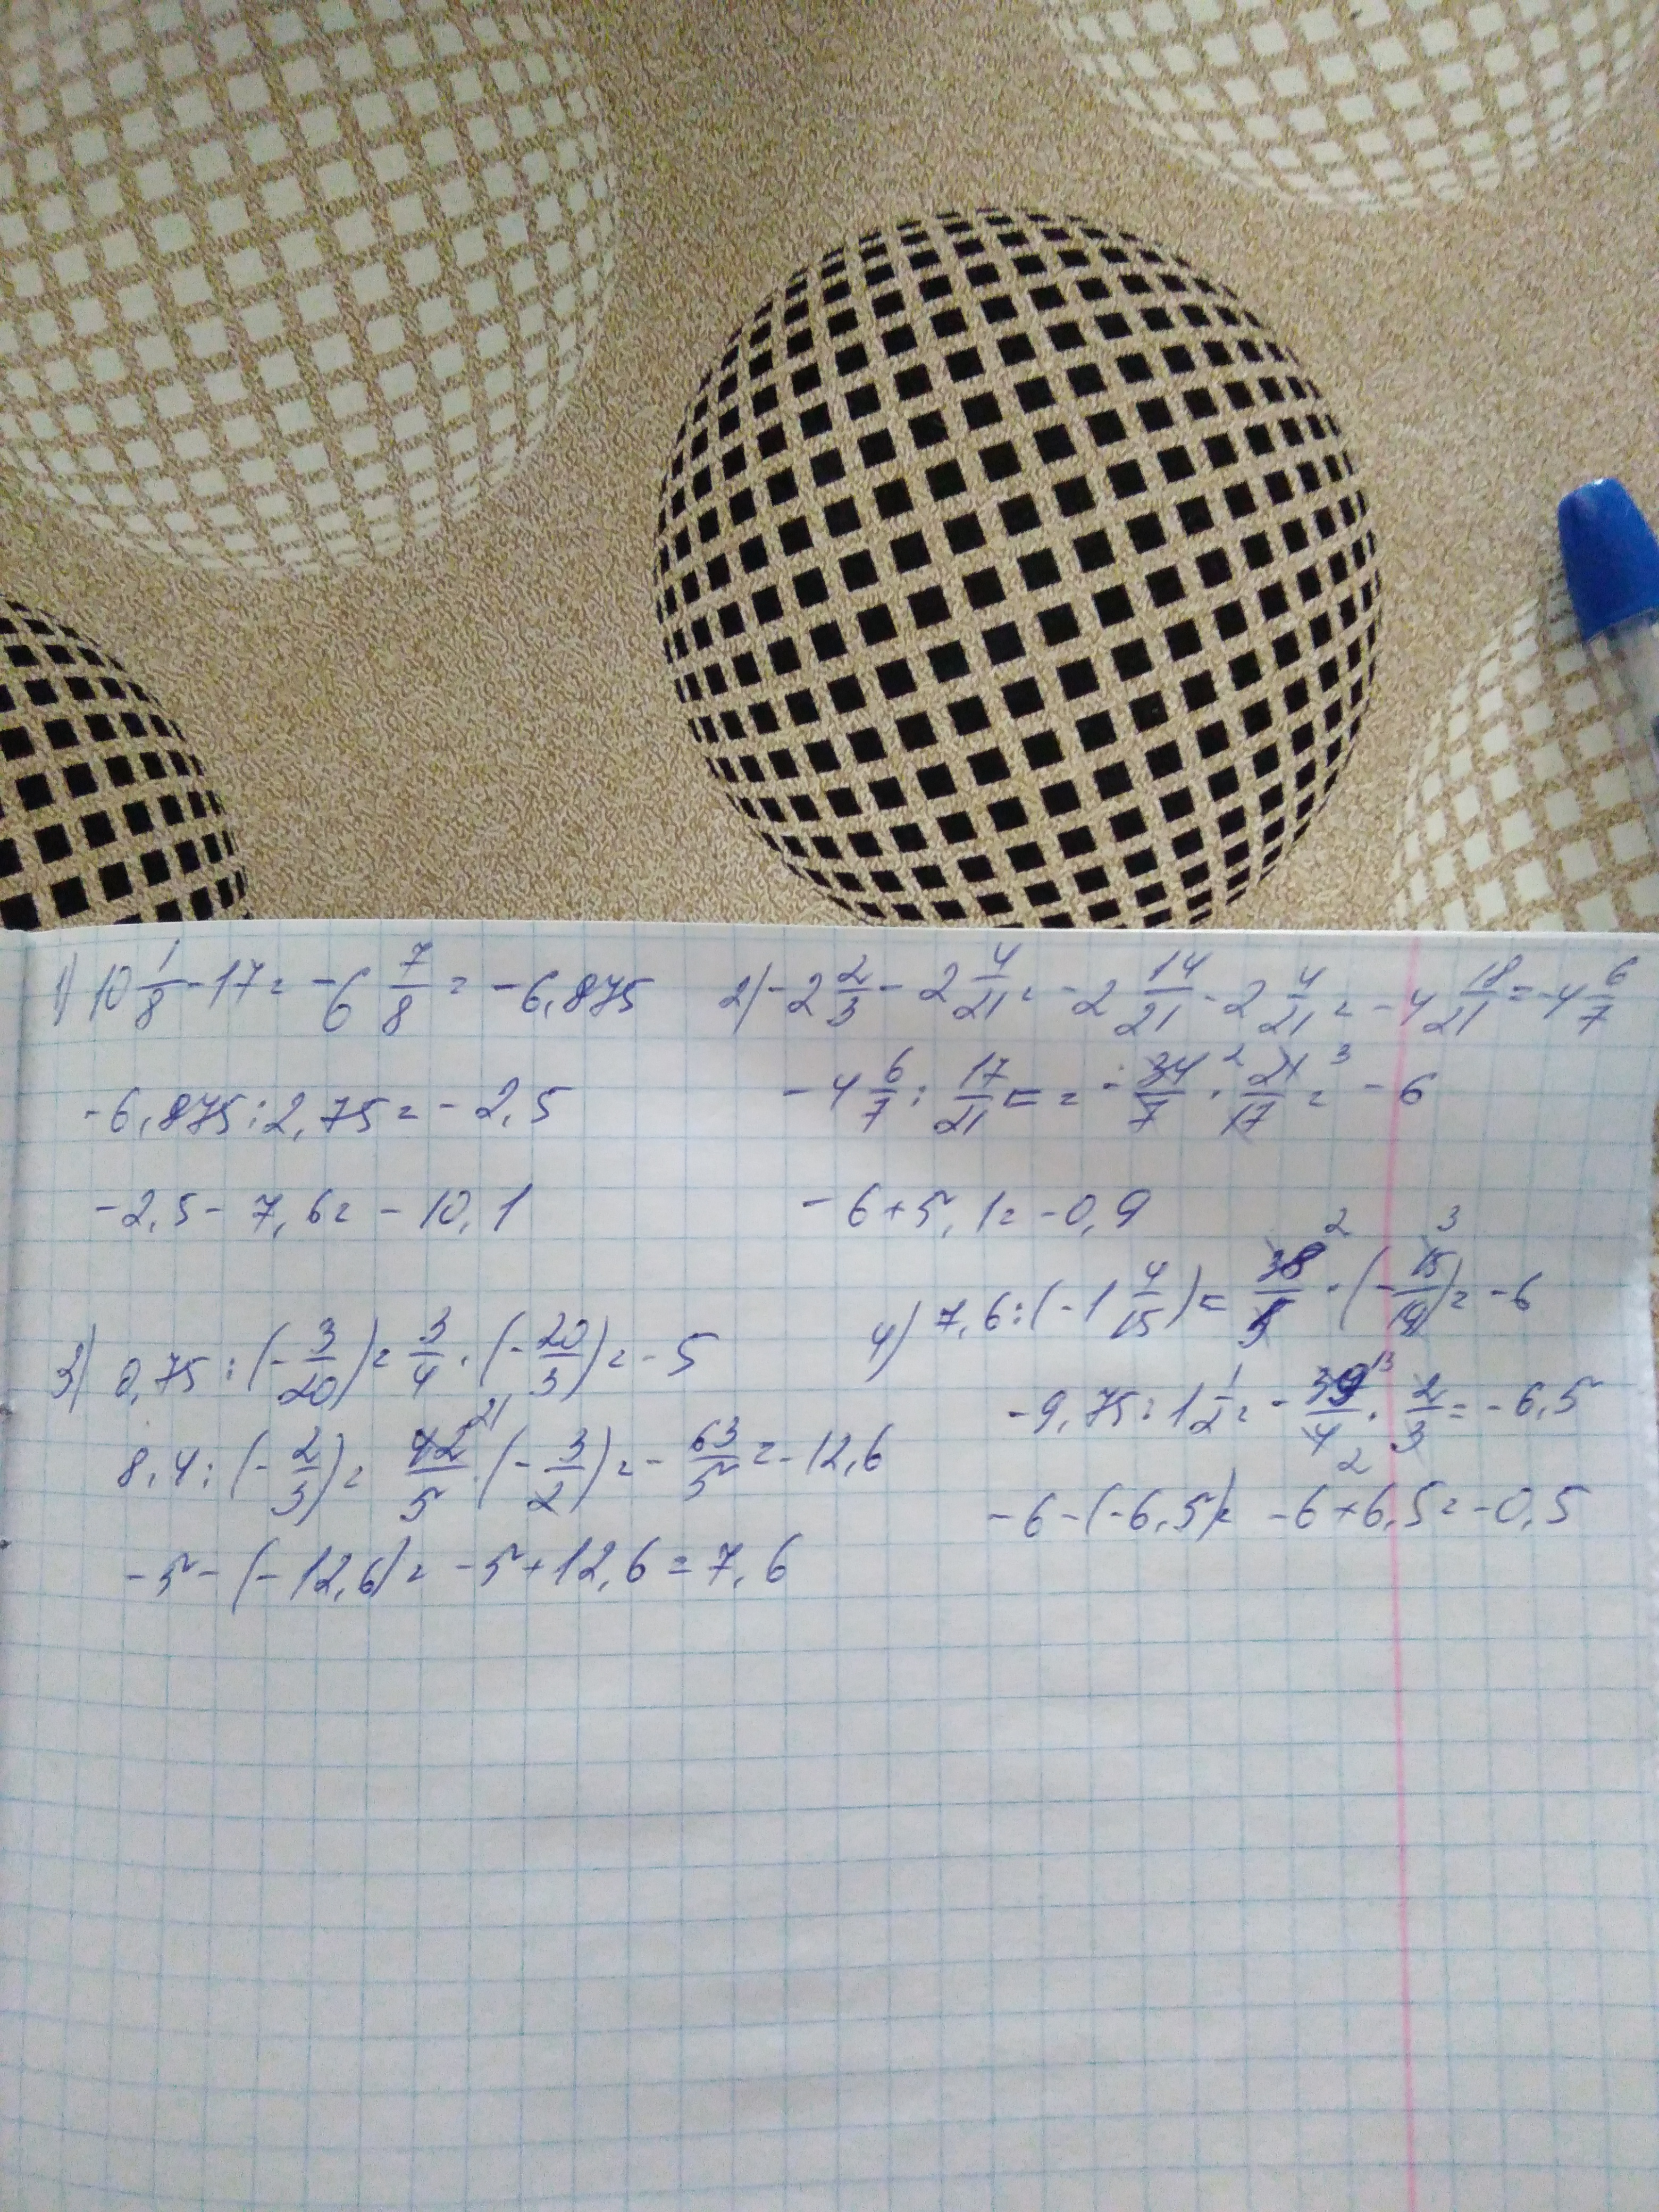 1) 10 1/8 - 17 = -6 7/8 = -6,875
-6,875 : 2,75 = -2,5
-2,5 - 7,6 = -10,1
2) -2 2/3 - 2 4/21 = -2 14/21 - 2 4/21 = -4 18/21 = -4 6/7
-4 6/7 : 17/21 = = -34/7 2 · 21/17 3 = -6
-6 + 5,1 = -0,9
3) 0,75 : (-3/20) = 3/4 · (-20/3) = -5
8,4 : (-2/3) = 42/5 21 · (-3/2) = -63/5 = -12,6
-5 - (-12,6) = -5 + 12,6 = 7,6
4) 7,6 : (-1 4/15) = 38/5 2 · (-15/19) 3 = -6
-9,75 : 1 1/2 = -39/4 13 2 · 2/3 = -6,5
-6 - (-6,5) = -6 + 6,5 = -0,5